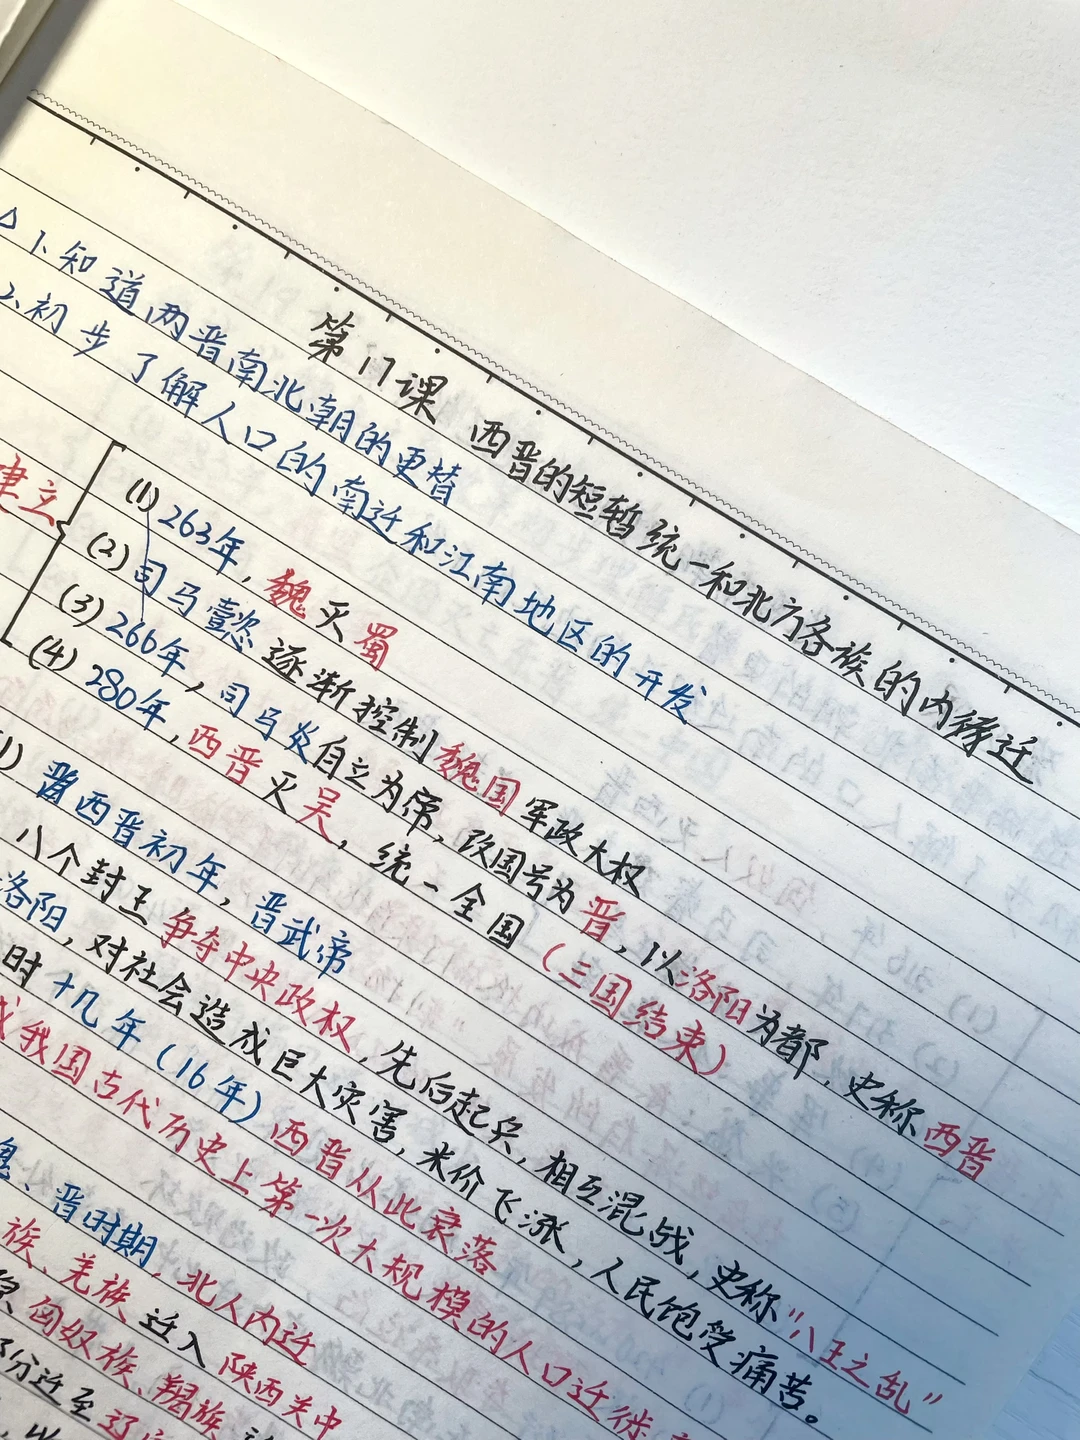 第17课 西晋的短暂统一和北方各族的内迁
△1、知道两晋南北朝的更替
2、初步了解人口的南迁和江南地区的开发
建立
(1)263年,魏灭蜀
(2)司马懿逐渐控制魏国军政大权
(3)266年,司马炎自立为帝,改国号为晋,以洛阳为都,史称西晋
(4)280年,西晋灭吴,统一全国(三国结束)
西晋初年,晋武帝
八个封王争夺中央政权,先后起兵,相互混战,史称"八王之乱"
洛阳,对社会造成巨大灾害,米价飞涨,人民饱受痛苦。
时十几年(16年)西晋从此衰落
成我国古代历史上第一次大规模的人口迁徙
、晋时期,北人内迁
族、羌族迁入陕西关中
匈奴族、羯族
部分迁至辽